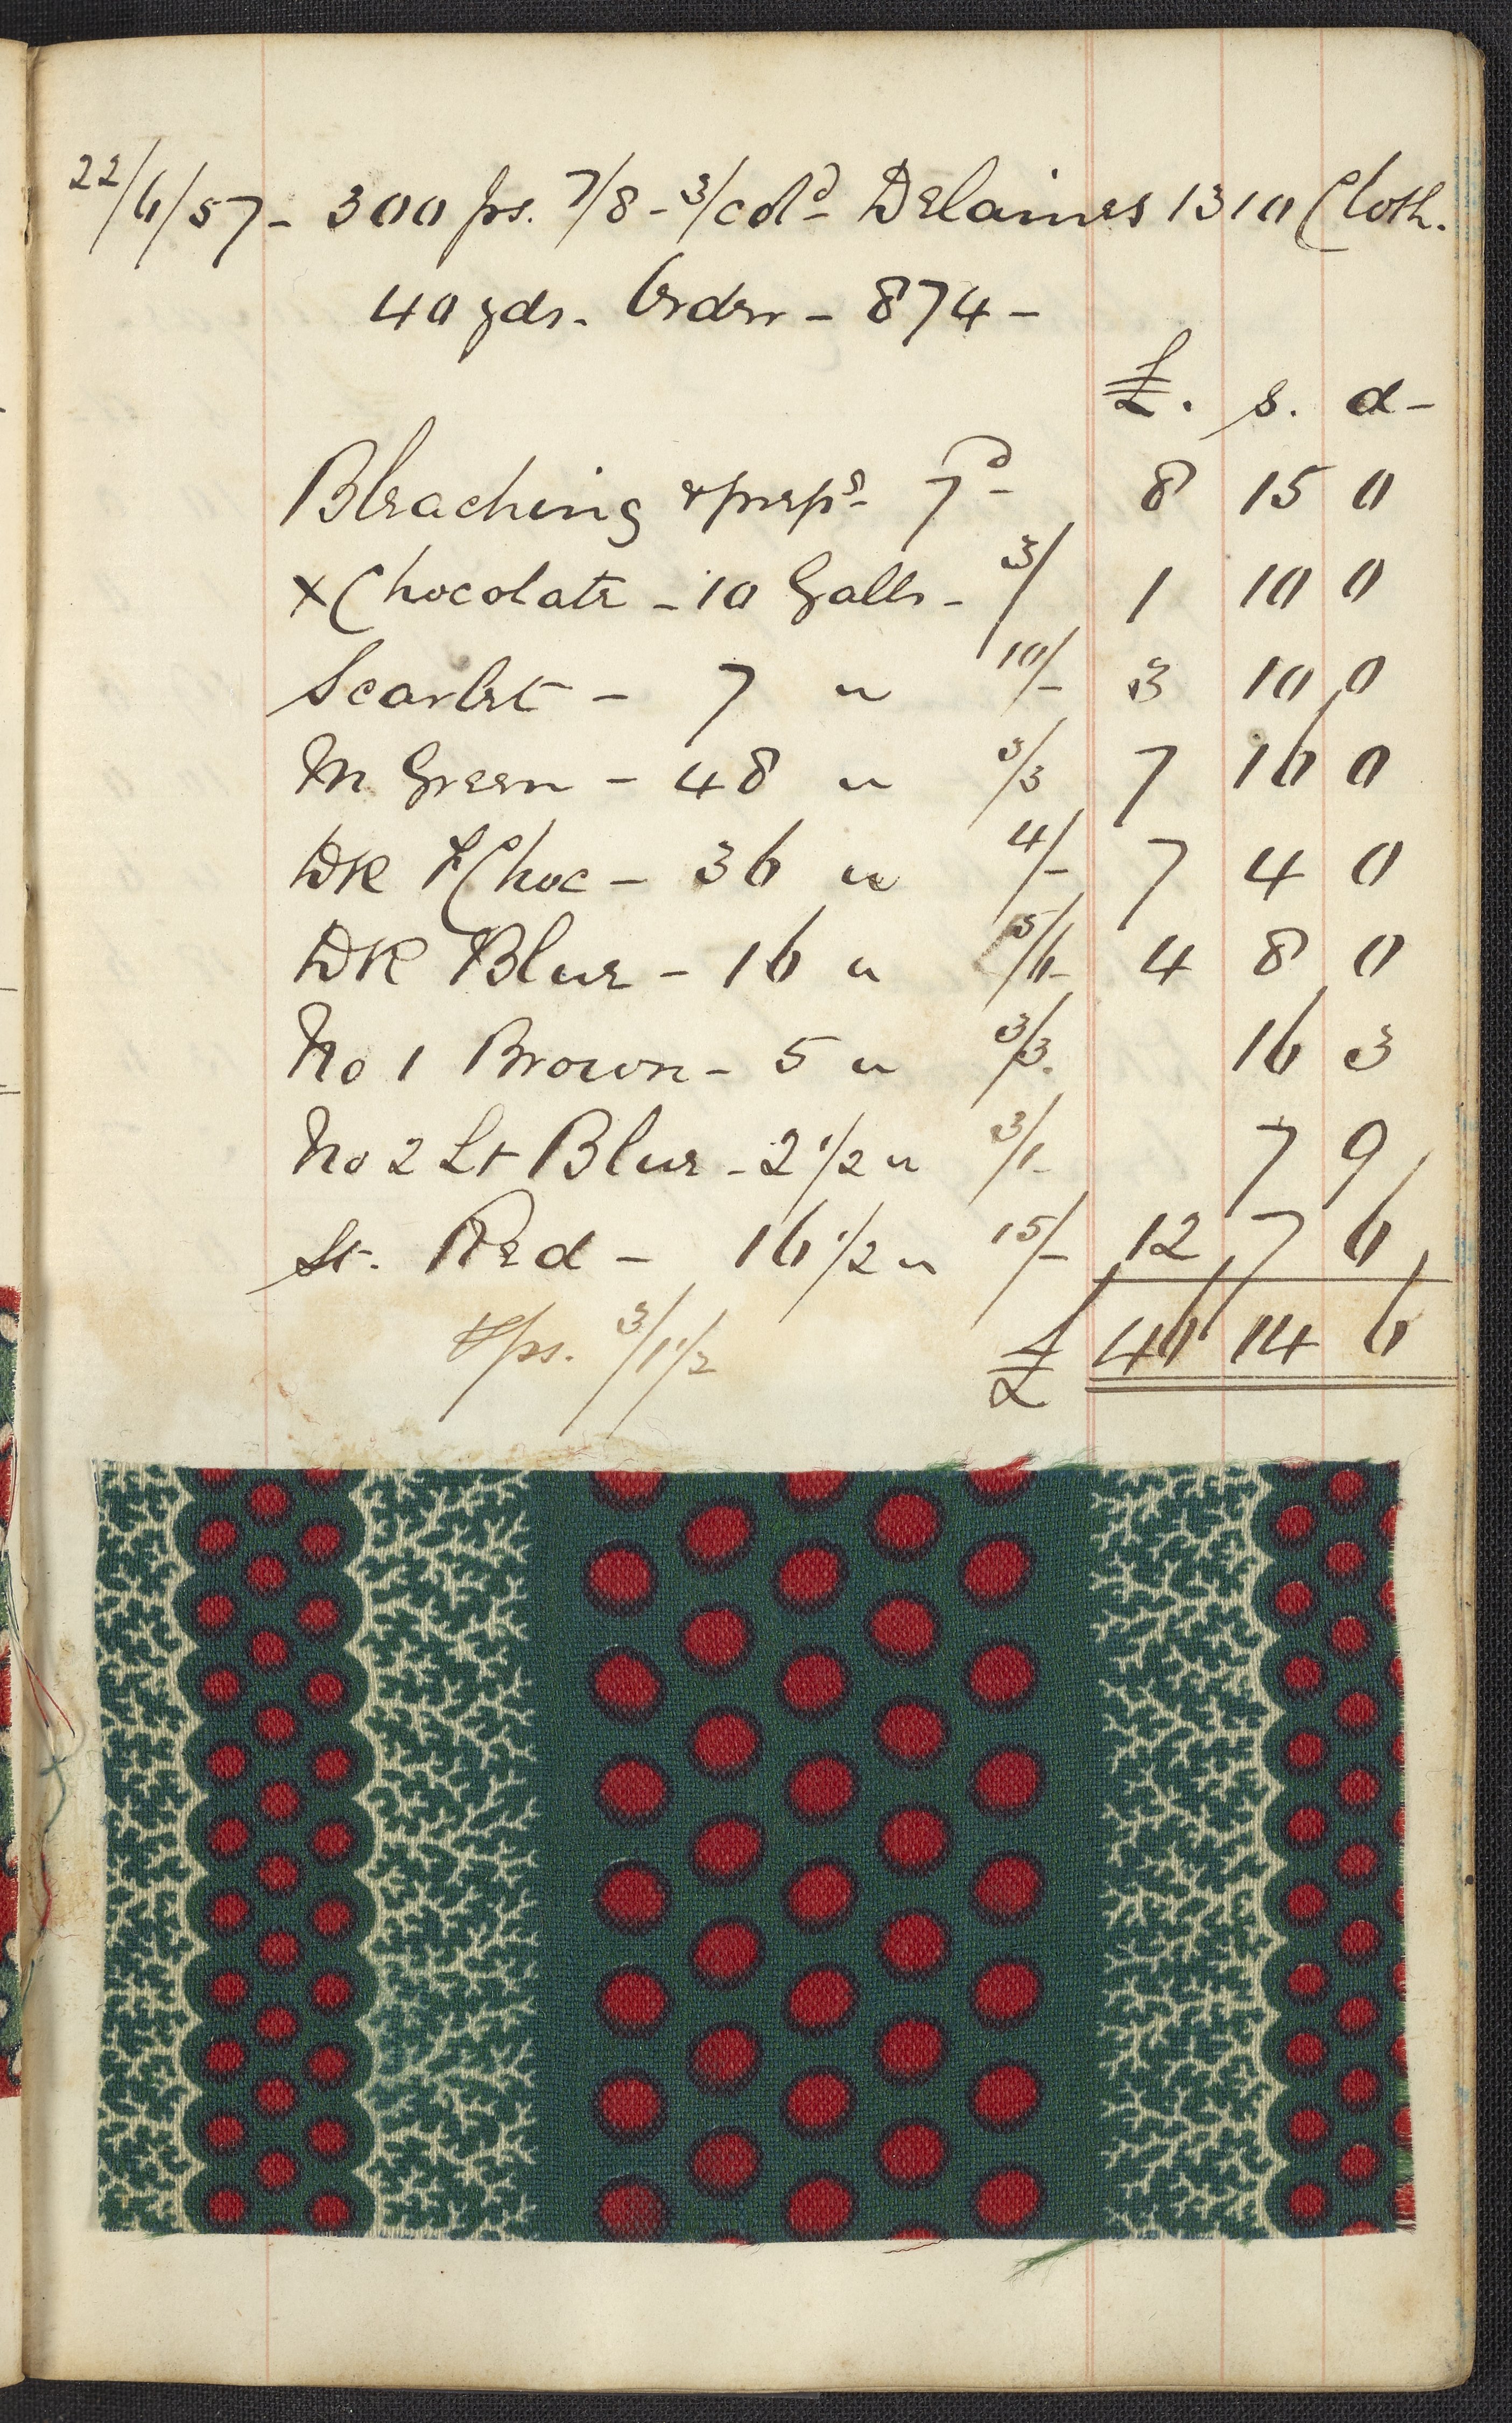 22/6/57 - 300 ps. 7/8 - 3/cold Delaines 1310 Cloth.
40 yds. Order - 874 -
£. s. d -
Bleaching & preps - 7d 8 15 0
x Chocolate - 10 Galls - 3/ 1 10 0
Scarlet - 7 " 10/- 3 10 0
M Green - 48 " 3/3 7 16 0
DK Choc - 36 " 4/- 7 4 0
DK Blue - 16 " 5/6 4 8 0
No 1 Brown - 5 " 3/3. 16 3
No 2 Lt Blue - 2 1/2 " 3/1 7 9
St. Red - 16 1/2 " 15/- 12 7 6
ps. 3/1 1/2 £ 46 14 6